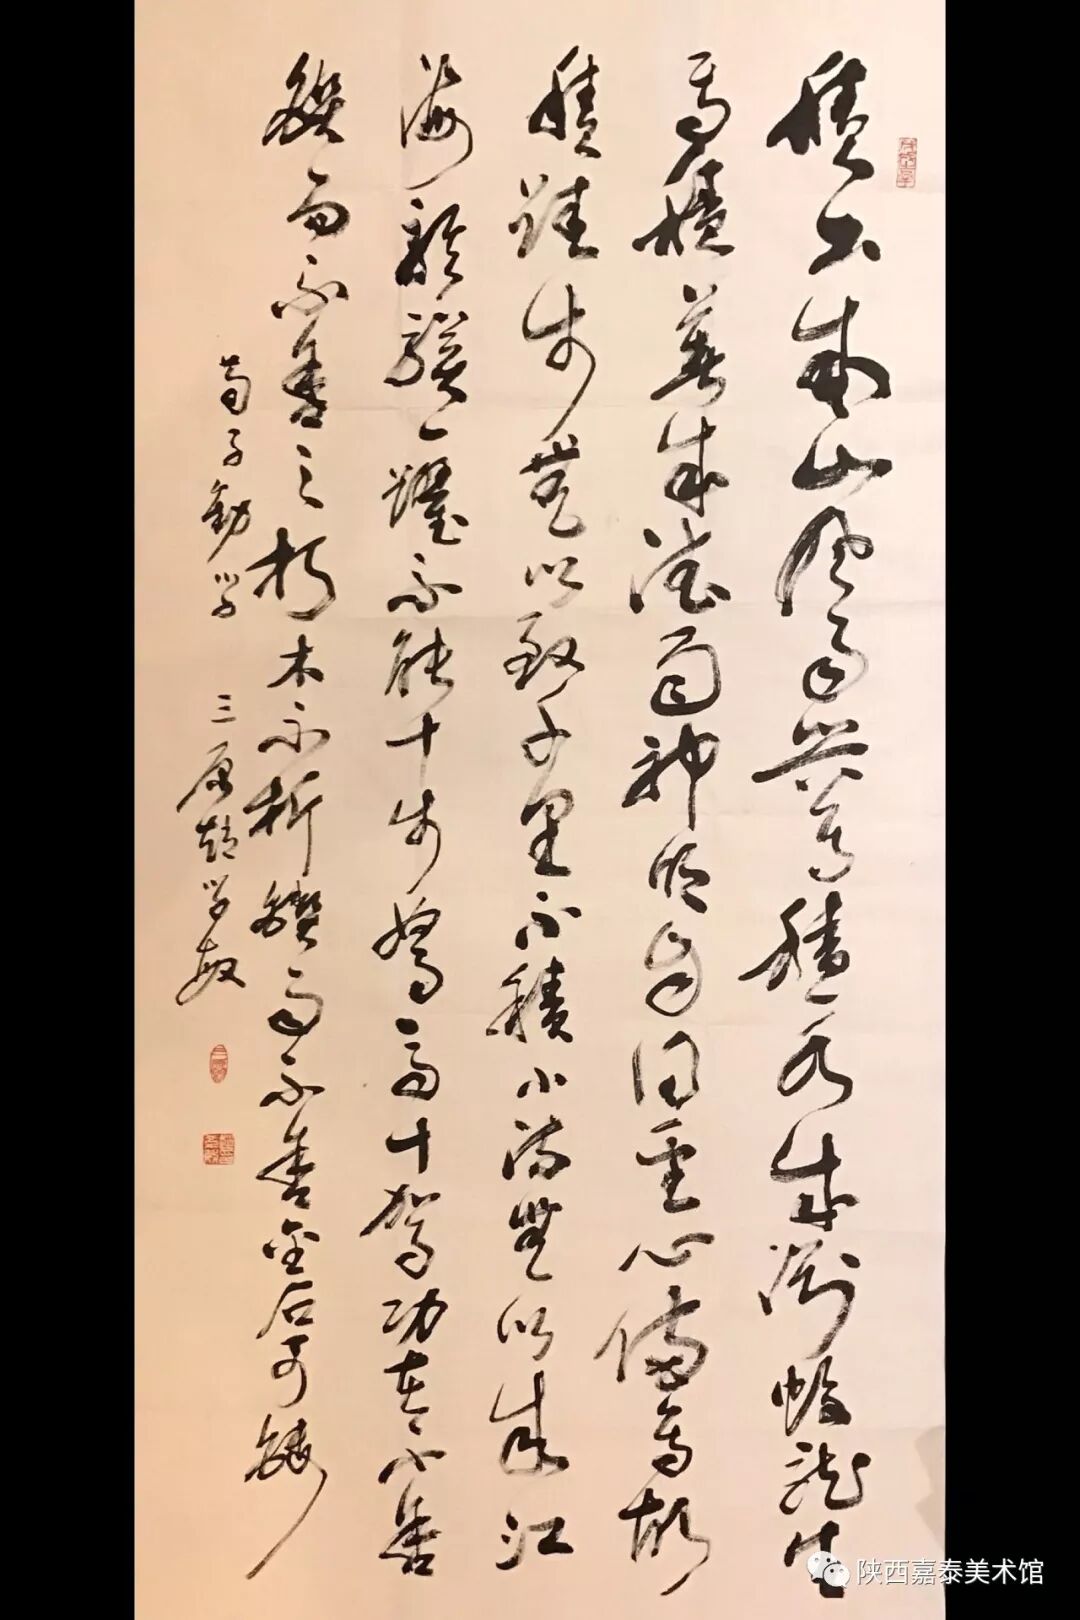 積土成山風雨興焉積水成渊蛟龍生
焉積善成德而神明自得聖心備焉故
積跬步無以致千里不積小流無以成江
海騏驥一躍不能十步駑馬十駕功在不舍
鍥而不舍之朽木不折鍥而不舍金石可鏤
荀子勸学 三原趙学敏
陕西嘉泰美术馆